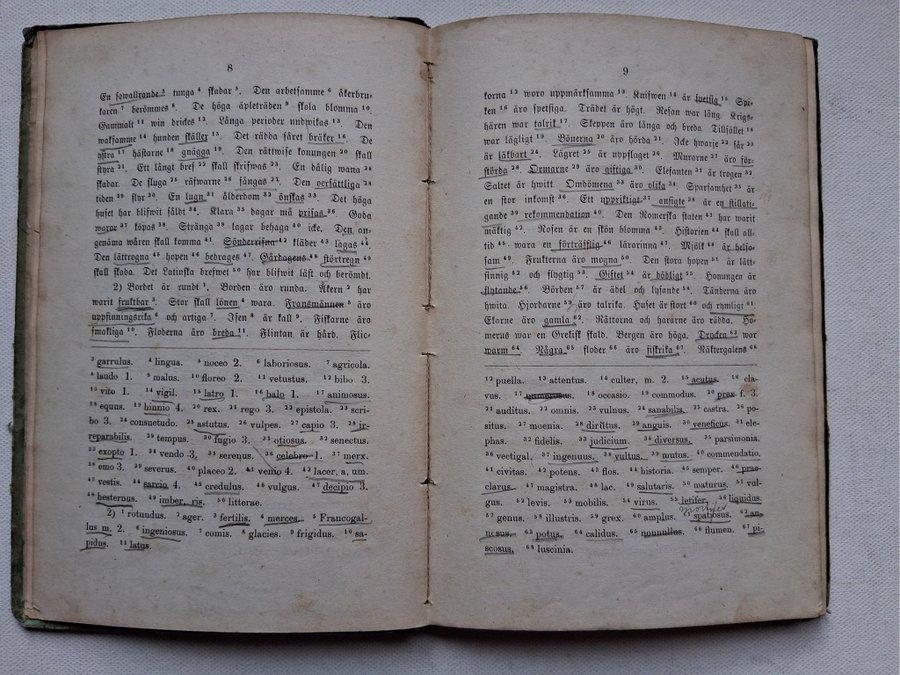 8
En sqwallrande ³ tunga ⁴ skadar ⁵. Den arbetsamme ⁶ åkerbru-
karen ⁷ berömmes ⁸. De höga äpleträden ⁹ skola blomma ¹⁰.
Gammalt ¹¹ win drickes ¹². Långa perioder undwikas ¹³. Den
waksamme ¹⁴ hunden skäller ¹⁵. Det rädda fåret bräker ¹⁶. De
ystra ¹⁷ hästarne ¹⁸ gnägga ¹⁹. Den rättwise konungen ²⁰ skall
styra ²¹. Ett långt bref ²² skall skrifwas ²³. En dålig wana ²⁴
skadar. De sluga ²⁵ räfwarne ²⁶ fångas ²⁷. Den oersättliga ²⁸
tiden ²⁹ flyr ³⁰. En lugn ³¹ ålderdom ³² önskas ³³. Det höga
huset har blifwit såldt ³⁴. Klara ³⁵ dagar må prisas ³⁶. Goda
waror ³⁷ köpas ³⁸. Stränga ³⁹ lagar behaga ⁴⁰ icke. Den an-
genäma wåren skall komma ⁴¹. Sönderrifna ⁴² kläder ⁴³ lagas ⁴⁴
Den lättrogna ⁴⁵ hopen ⁴⁶ bedrages ⁴⁷. Gårdagens ⁴⁸ störtregn ⁴⁹
skall skada. Det Latinska brefwet ⁵⁰ har blifwit läst och berömdt.
2) Bordet är rundt ¹. Borden äro runda. Åkern ² har
warit fruktbar ³. Stor skall lönen ⁴ wara. Fransmännen ⁵ äro
uppfinningsrika ⁶ och artiga ⁷. Isen ⁸ är kall ⁹. Fiskarne äro
smakliga ¹⁰. Floderna äro breda ¹¹. Flintan är hård. Flic-
³ garrulus. ⁴ lingua. ⁵ noceo 2. ⁶ laboriosus. ⁷ agricola.
⁸ laudo 1. ⁹ malus. ¹⁰ floreo 2. ¹¹ vetustus. ¹² bibo 3.
¹³ vito 1. ¹⁴ vigil. ¹⁵ latro 1. ¹⁶ balo 1. ¹⁷ animosus.
¹⁸ equus. ¹⁹ hinnio 4. ²⁰ rex. ²¹ rego 3. ²² epistola. ²³ scri-
bo 3. ²⁴ consuetudo. ²⁵ astutus. ²⁶ vulpes. ²⁷ capio 3. ²⁸ ir-
reparabilis. ²⁹ tempus. ³⁰ fugio 3. ³¹ otiosus. ³² senectus.
³³ exopto 1. ³⁴ vendo 3. ³⁵ serenus. ³⁶ celebro 1. ³⁷ merx.
³⁸ emo 3. ³⁹ severus. ⁴⁰ placeo 2. ⁴¹ venio 4. ⁴² lacer, a, um.
⁴³ vestis. ⁴⁴ sarcio 4. ⁴⁵ credulus. ⁴⁶ vulgus. ⁴⁷ decipio 3.
⁴⁸ hesternus. ⁴⁹ imber, ris. ⁵⁰ litterae.
2) ¹ rotundus. ² ager. ³ fertilis. ⁴ merces. ⁵ Francogal-
lus m. 2. ⁶ ingeniosus. ⁷ comis. ⁸ glacies. ⁹ frigidus. ¹⁰ sa-
pidus. ¹¹ latus.
9
korna ¹² woro uppmärksamma ¹³. Knifwen ¹⁴ är spetsig ¹⁵ Spi-
ken ¹⁶ äro spetsiga. Trädet är högt. Resan war lång. Krigs-
hären war talrik ¹⁷. Skeppen äro långa och breda. Tillfället ¹⁸
war lägligt ¹⁹. Bönerna ²⁰ äro hörda ²¹. Icke hwarje ²² sår ²³
är läkbart ²⁴. Lägret ²⁵ är uppslaget ²⁶. Murarne ²⁷ äro för-
störda ²⁸. Ormarne ²⁹ äro giftiga ³⁰. Elefanten ³¹ är trogen ³²
Saltet är hwitt. Omdömena ³³ äro olika ³⁴. Sparsamhet ³⁵ är
en stor inkomst ³⁶. Ett uppriktigt ³⁷ ansigte ³⁸ är en stillati-
gande ³⁹ rekommendation ⁴⁰. Den Romerska staten ⁴¹ har warit
mäktig ⁴². Rosen är en skön blomma ⁴³. Historien ⁴⁴ skall all-
tid ⁴⁵ wara en förträfflig ⁴⁶ lärarinna ⁴⁷. Mjölk ⁴⁸ är helso-
sam ⁴⁹. Frukterna äro mogna ⁵⁰. Den stora hopen ⁵¹ är lätt-
sinnig ⁵² och flygtig ⁵³. Giftet ⁵⁴ är dödligt ⁵⁵. Honungen är
flytande ⁵⁶. Börden ⁵⁷ är ädel och lysande ⁵⁸. Tänderna äro
hwita. Hjordarne ⁵⁹ äro talrika. Huset är stort ⁶⁰ och rymligt ⁶¹.
Ekarne äro gamla ⁶². Råttorna och hararne äro rädda. Ho-
merus war en Grekisk skald. Bergen äro höga. Drycken ⁶³ war
warm ⁶⁴. Några ⁶⁵ floder ⁶⁶ äro fiskrika ⁶⁷. Näktergalens ⁶⁸
¹² puella. ¹³ attentus. ¹⁴ culter, m. 2. ¹⁵ acutus. ¹⁶ cla-
vus. ¹⁷ numerosus. ¹⁸ occasio. ¹⁹ commodus. ²⁰ prex f. 3.
²¹ auditus. ²² omnis. ²³ vulnus. ²⁴ sanabilis. ²⁵ castra. ²⁶ po-
situs. ²⁷ moenia. ²⁸ dirutus. ²⁹ anguis. ³⁰ veneficus. ³¹ ele-
phas. ³² fidelis. ³³ judicium. ³⁴ diversus. ³⁵ parsimonia.
³⁶ vectigal. ³⁷ ingenuus. ³⁸ vultus. ³⁹ mutus. ⁴⁰ commendatio.
⁴¹ civitas. ⁴² potens. ⁴³ flos. ⁴⁴ historia. ⁴⁵ semper. ⁴⁶ prae-
clarus. ⁴⁷ magistra. ⁴⁸ lac. ⁴⁹ salutaris. ⁵⁰ maturus. ⁵¹ vul-
gus. ⁵² levis. ⁵³ mobilis. ⁵⁴ virus. ⁵⁵ letifer. ⁵⁶ liquidus.
⁵⁷ genus. ⁵⁸ illustris. ⁵⁹ grex. ⁶⁰ amplus. ⁶¹ spatiosus. ⁶² an-
nosus. ⁶³ potus. ⁶⁴ calidus. ⁶⁵ nonnullus. ⁶⁶ flumen. ⁶⁷ pi-
scosus. ⁶⁸ luscinia.